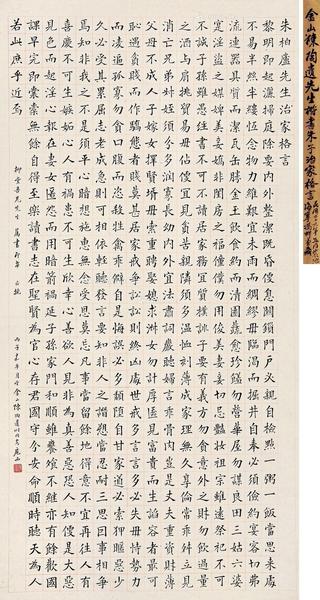 金山陳陶遺先生楷書朱子治家格言
朱柏廬先生治家格言
黎明即起灑掃庭除要內外整潔既昏便息關鎖門戶必親自檢點一粥一飯當思來處
不易半絲半縷恆念物力維艱宜未雨而綢繆毋臨渴而掘井自奉必須儉約宴客切勿
流連器具質而潔瓦缶勝金玉飲食約而精園蔬愈珍饈勿營華屋勿謀良田三姑六婆
實淫盜之媒婢美妾嬌非閨房之福僮僕勿用俊美妻妾切忌豔妝祖宗雖遠祭祀不可
不誠子孫雖愚經書不可不讀居家務宜質樸誨子要有義方勿貪意外之財勿飲過量
之酒與肩挑貿易毋佔便宜見貧苦親鄰須多溫恤刻薄成家理無久享倫常乖舛立見
消亡兄弟叔姪須多分潤寡長幼內外宜法肅詞嚴聽婦言乖骨肉豈是丈夫重資財薄
父母不成人子嫁女擇佳婿毋索重聘娶媳求淑女勿計厚奩見富貴而生諂容者最可
恥遇貧賤而作驕態者賤莫甚居家戒爭訟訟則終凶處世戒多言言多必失毋恃勢力
而凌逼孤寡勿貪口腹而恣殺牲禽乖僻自是悔誤必多頹惰自甘家道必索狎暱惡少
久必受其累屈志老成急則可相依輕聽發言安知非人之譖愬當忍耐三思因事相爭
焉知非我之不是須平心暗想施惠無念受恩莫忘凡事當留餘地得意不宜再往人有
喜慶不可生嫉妬心人有禍患不可生欣幸心善欲人見非為真善惡恐人知便是大惡
見色而起淫心報在妻女匿怨而用暗箭禍延子孫家門和順雖饔飧不繼亦有餘歡國
課早完即囊橐無餘自得至樂讀書志在聖賢為官心存君國守分安命順時聽天為人
若此庶乎近焉